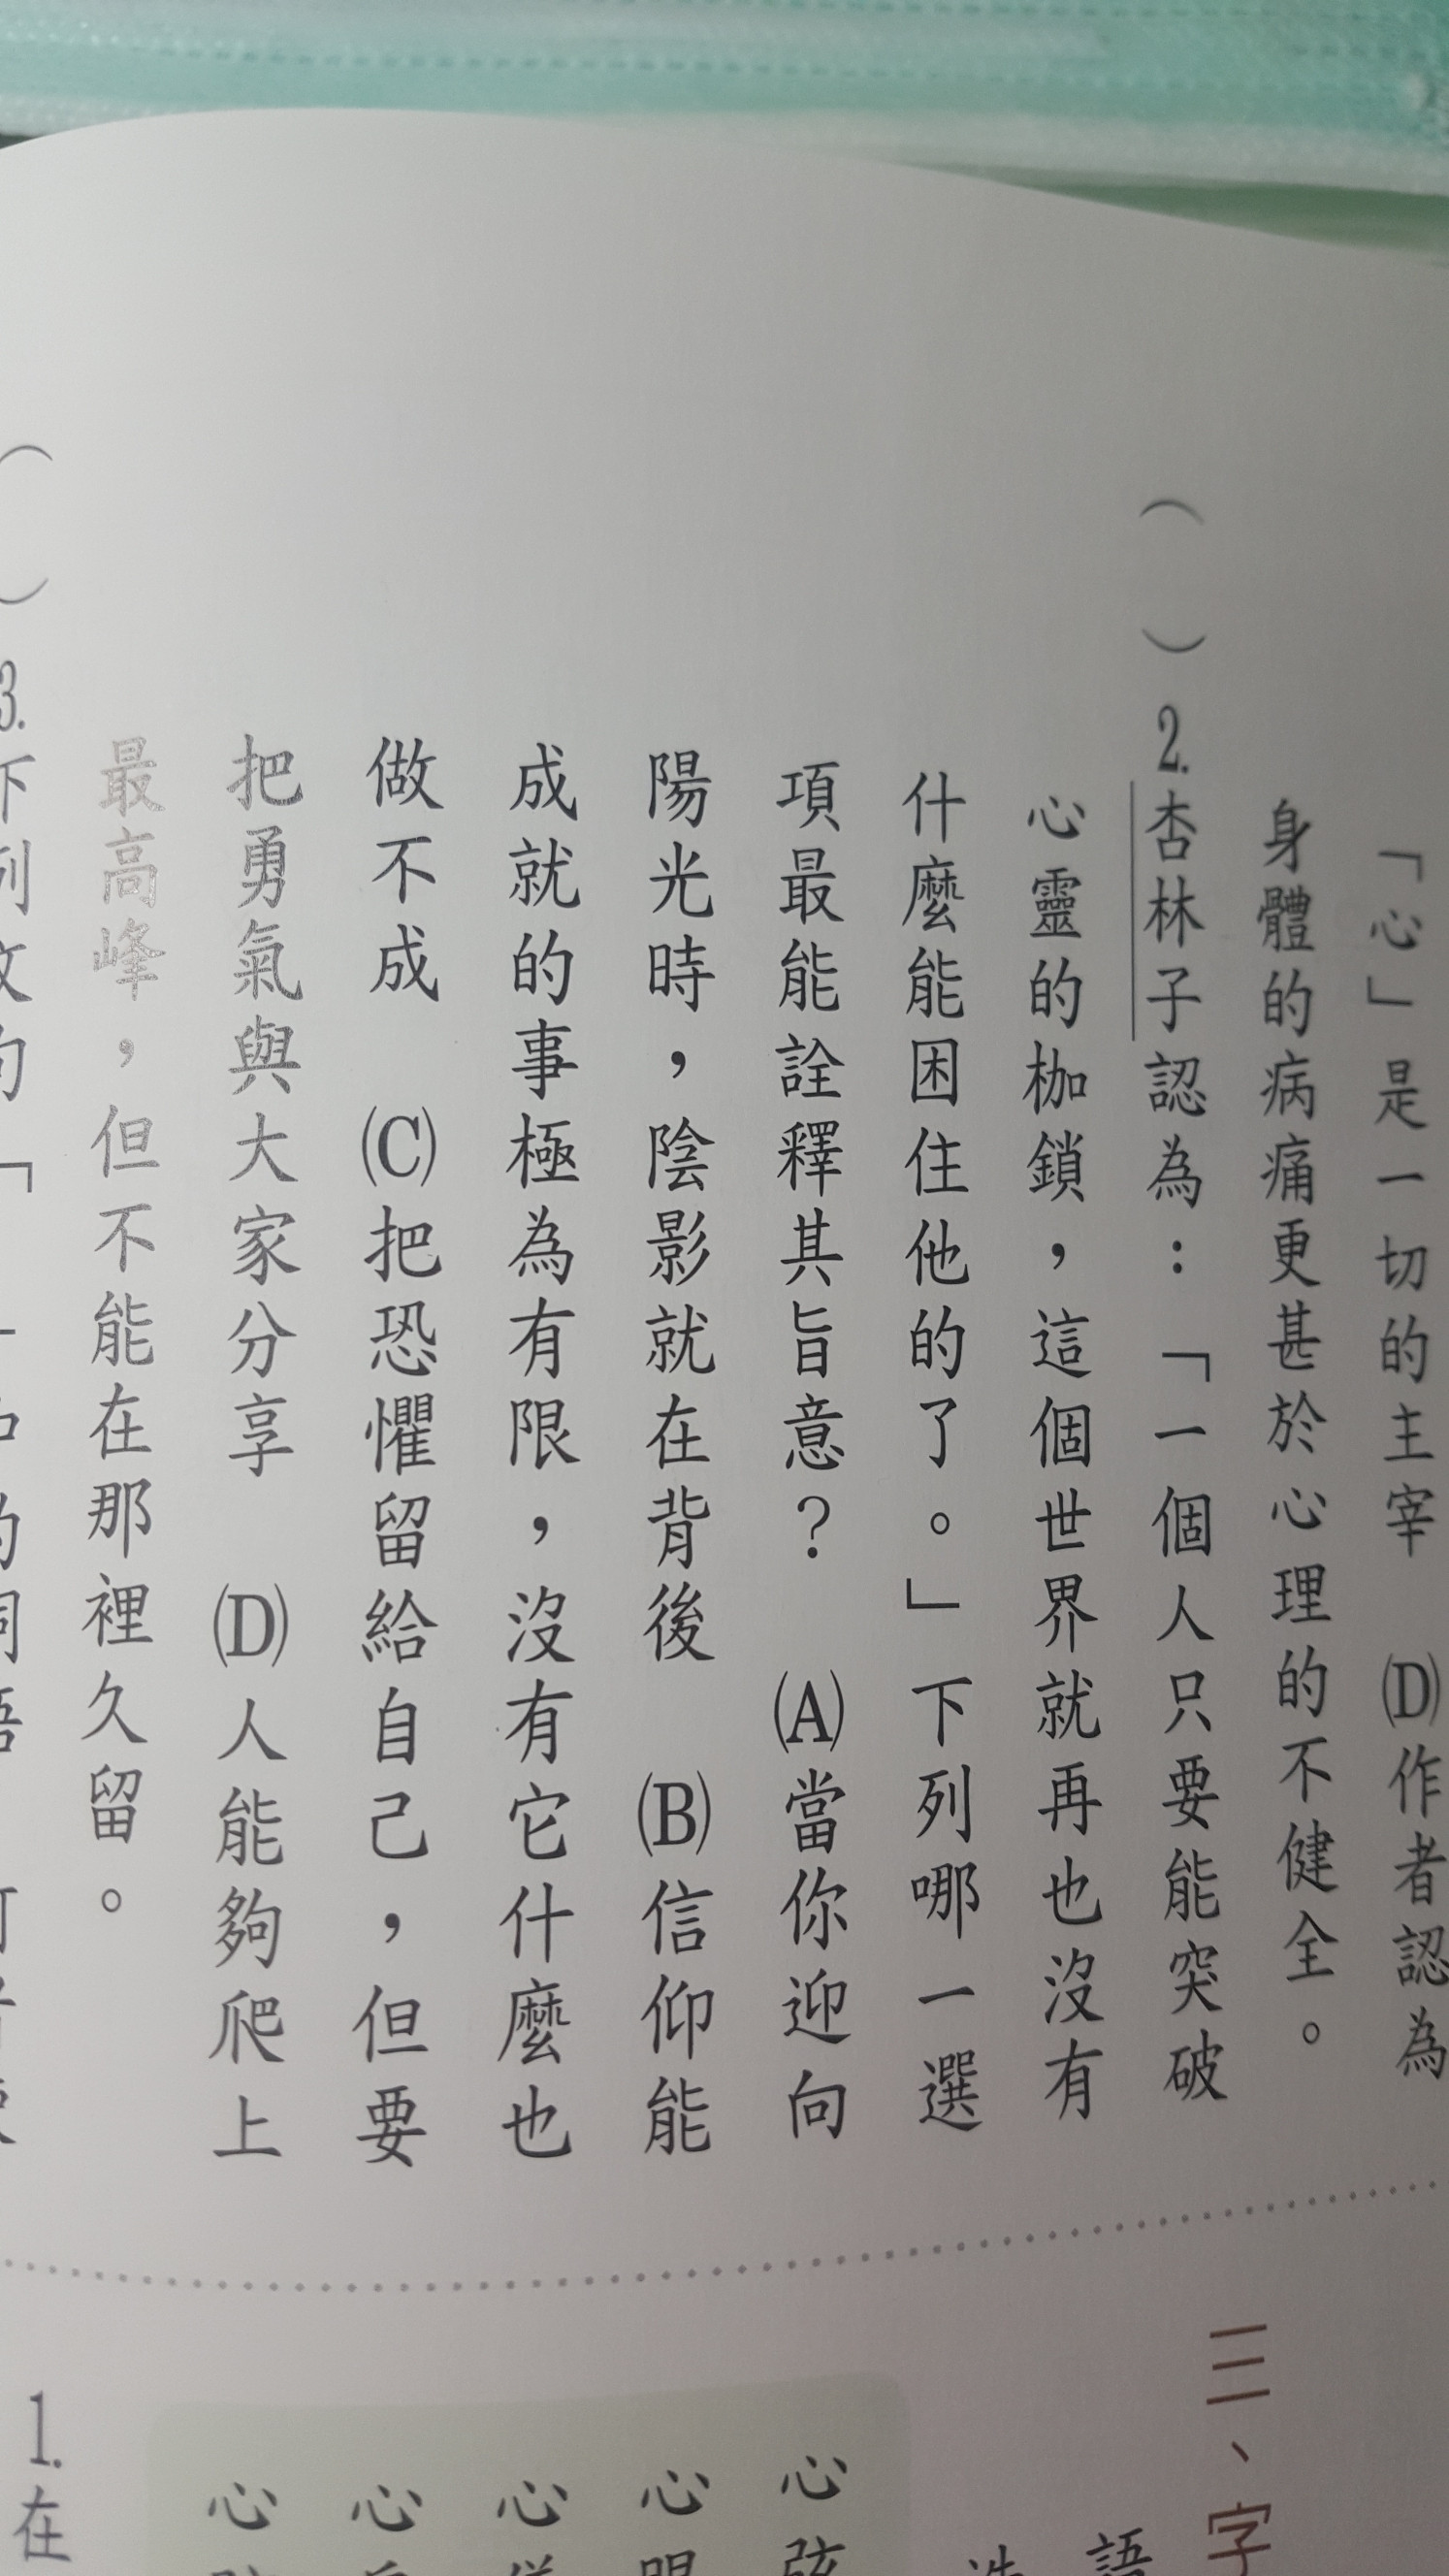 「心」是一切的主宰　(D)作者認為
身體的病痛更甚於心理的不健全。
（　）2.杏林子認為：「一個人只要能突破
心靈的枷鎖，這個世界就再也沒有
什麼能困住他的了。」下列哪一選
項最能詮釋其旨意？　(A)當你迎向
陽光時，陰影就在背後　(B)信仰能
成就的事極為有限，沒有它什麼也
做不成　(C)把恐懼留給自己，但要
把勇氣與大家分享　(D)人能夠爬上
最高峰，但不能在那裡久留。
（　）3.下列
三、字
語
心弦
心
心
心
心
1.在